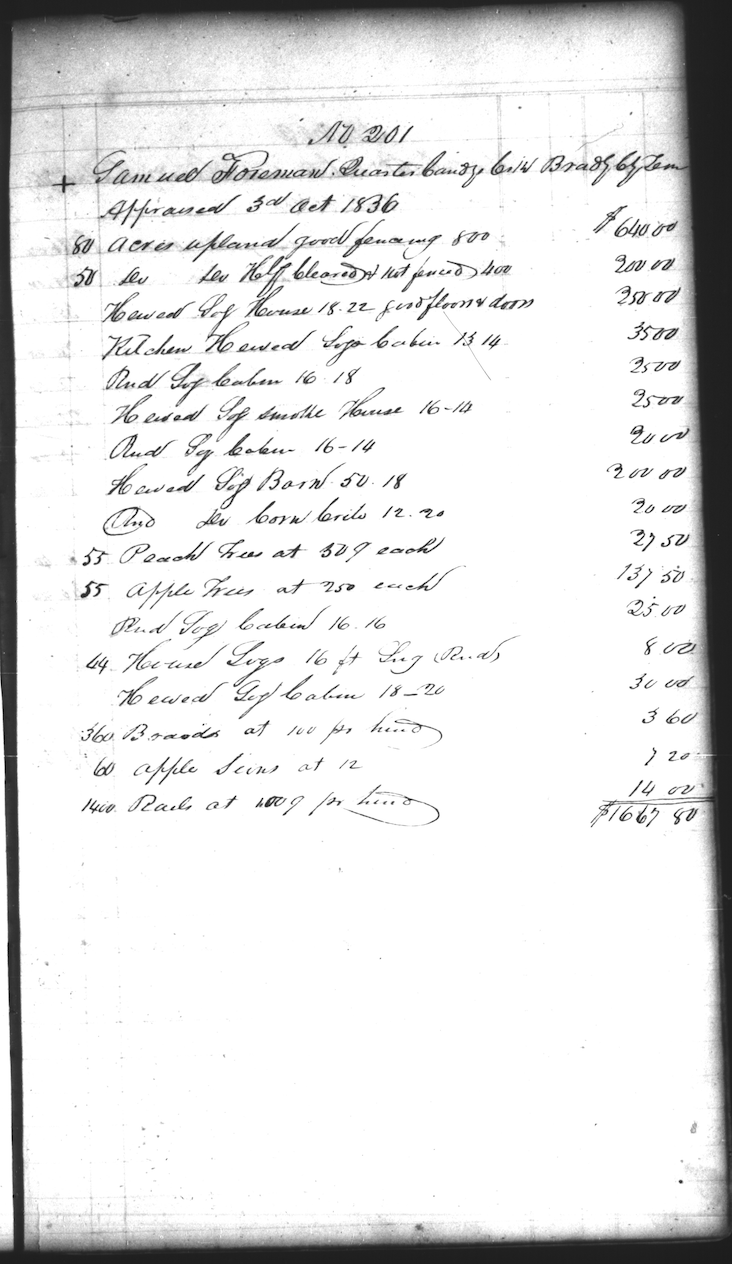 No 201
+ Samuel Foreman. Quarter bandy Crik Bradly Cty Ten
Appraised 3d Oct 1836
80 acres upland good fencing 800 $640 00
50 Do Do Half Cleared & not fenced 400 200 00
Hewed Log House 18-22 good floors & doors 250 00
Kitchen Hewed Logs Cabin 13 14 35 00
Rnd Log Cabin 16 18 25 00
Hewed Log smoke House 16-14 25 00
Rnd Log Cabin 16-14 20 00
Hewed Log Barn 50. 18 200 00
Rnd Do Corn Crib 12. 20 20 00
55 Peach Trees at 50 each 27 50
55 Apple Trees at 250 each 137 50
Rnd Log Cabin 16. 16 25 00
44 House Logs 16 ft Lng Rnd 8 00
Hewed Log Cabin 18-20 30 00
360 Boards at 100 pr hund 3 60
60 Apple Sions at 12 7 20
1400 Rails at 100 pr hund 14 00
$1667 80